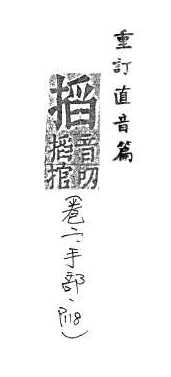 重訂直音篇
搯
音叨
搯捾
(卷二、手部、P118)